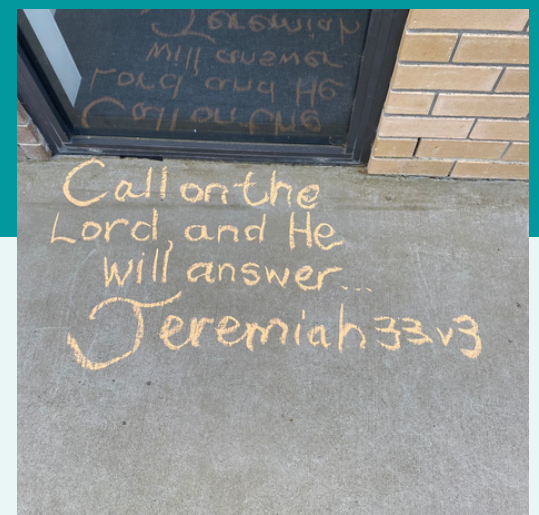 Call on the
Lord, and He
will answer...
Jeremiah 33v3